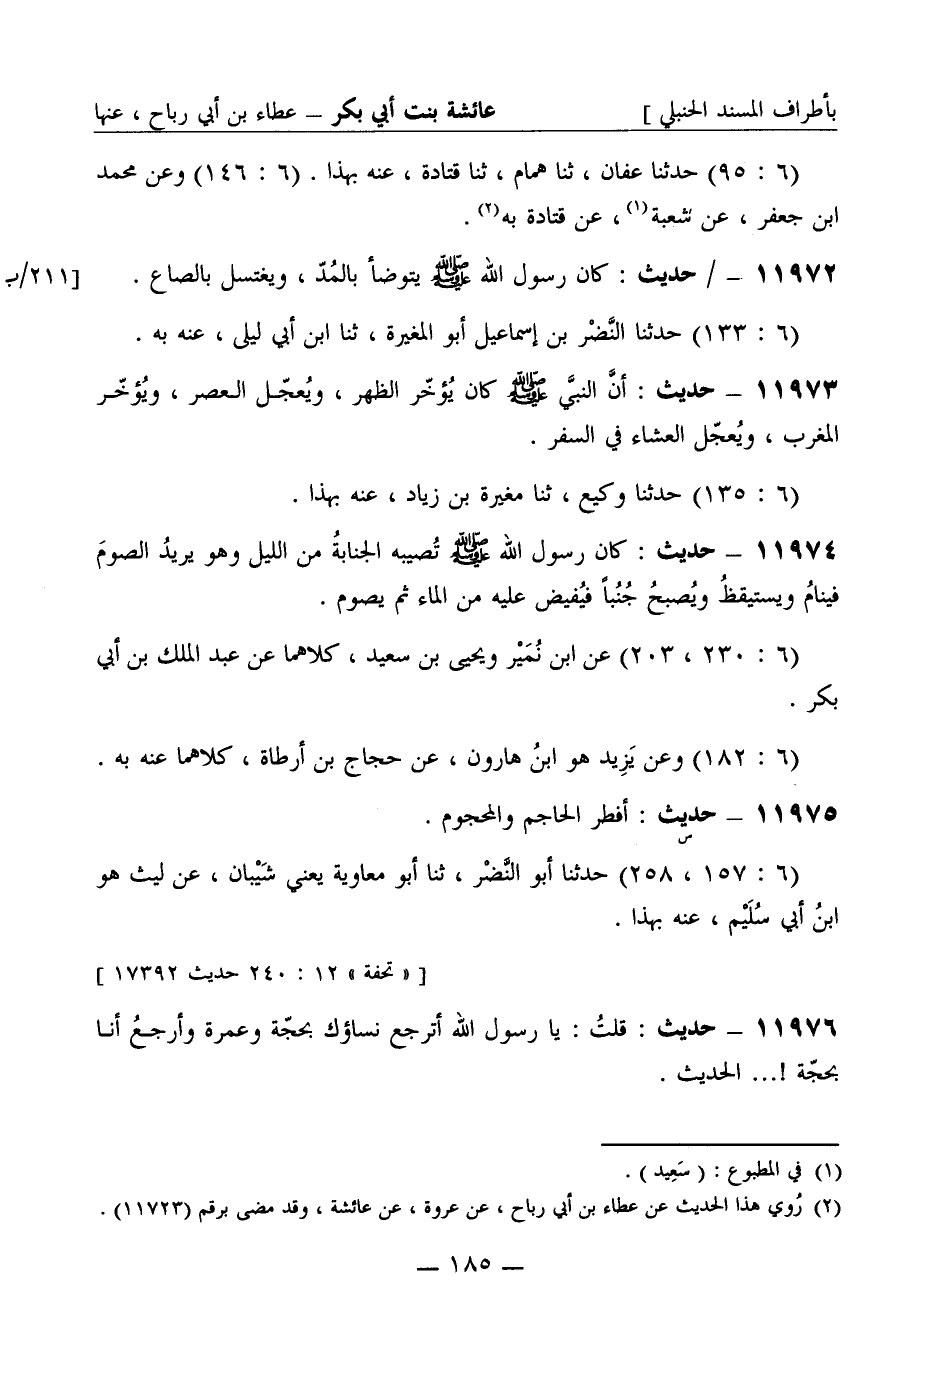 بأطراف المسند الحنبلي ] عائشة بنت أبي بكر – عطاء بن أبي رباح ، عنها
(٦ : ٩٥) حدثنا عفان ، ثنا همام ، ثنا قتادة ، عنه بهذا . (٦ : ١٤٦) وعن محمد
ابن جعفر ، عن شعبة(١) ، عن قتادة به(٢) .
١١٩٧٢ – / حديث : كان رسول الله ﷺ يتوضأ بالمُدّ ، ويغتسل بالصاع . [٢١١/ب
(٦ : ١٣٣) حدثنا النَّضْر بن إسماعيل أبو المغيرة ، ثنا ابن أبي ليلى ، عنه به .
١١٩٧٣ – حديث : أنَّ النبيَّ ﷺ كان يُؤخّر الظهر ، ويُعجّل العصر ، ويُؤخّر
المغرب ، ويُعجّل العشاء في السفر .
(٦ : ١٣٥) حدثنا وكيع ، ثنا مغيرة بن زياد ، عنه بهذا .
١١٩٧٤ – حديث : كان رسول الله ﷺ تُصيبه الجنابةُ من الليل وهو يريدُ الصومَ
فينامُ ويستيقظُ ويُصبحُ جُنُباً فيُفيض عليه من الماء ثم يصوم .
(٦ : ٢٣٠ ، ٢٠٣) عن ابن نُمَيْر ويحيى بن سعيد ، كلاهما عن عبد الملك بن أبي
بكر .
(٦ : ١٨٢) وعن يَزِيد هو ابنُ هارون ، عن حجاج بن أرطاة ، كلاهما عنه به .
١١٩٧٥ – حديث : أفطر الحاجم والمحجوم .
س
(٦ : ١٥٧ ، ٢٥٨) حدثنا أبو النَّضْر ، ثنا أبو معاوية يعني شَيْبان ، عن ليث هو
ابنُ أبي سُلَيْم ، عنه بهذا .
[ « تحفة » ١٢ : ٢٤٠ حديث ١٧٣٩٢ ]
١١٩٧٦ – حديث : قلتُ : يا رسول الله أترجع نساؤك بحجّة وعمرة وأرجعُ أنا
بحجّة !... الحديث .
(١) في المطبوع : ( سَعِيد ) .
(٢) رُوي هذا الحديث عن عطاء بن أبي رباح ، عن عروة ، عن عائشة ، وقد مضى برقم (١١٧٢٣) .
– ١٨٥ –